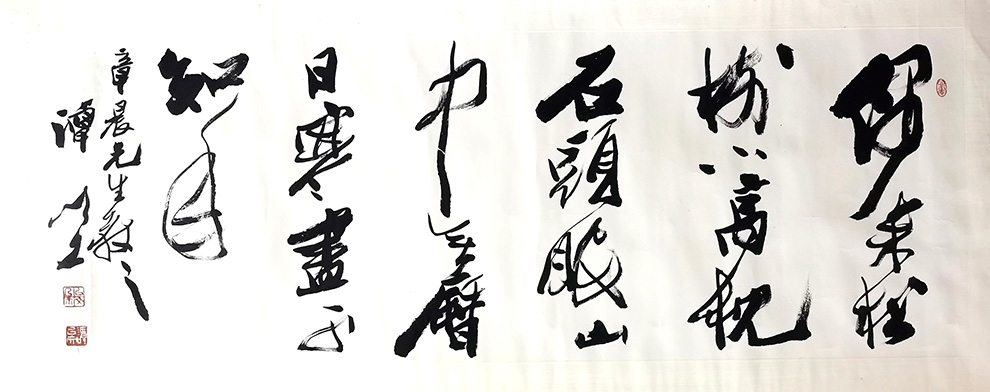 偶来松
树下高枕
石頭眠山
中无曆
日寒盡不
知年
章晨先生教之
谭